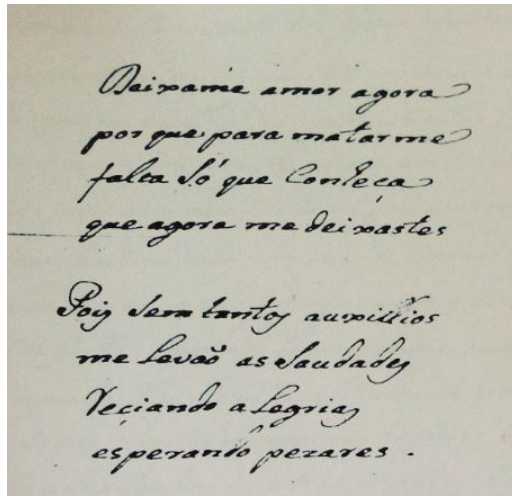 Deixame amor agora
por que para matarme
falta só que Conteça
que agora me deixastes
Pois sem tantos auxillios
me levaõ as saudades
Veciando alegrias
esperando pezares .